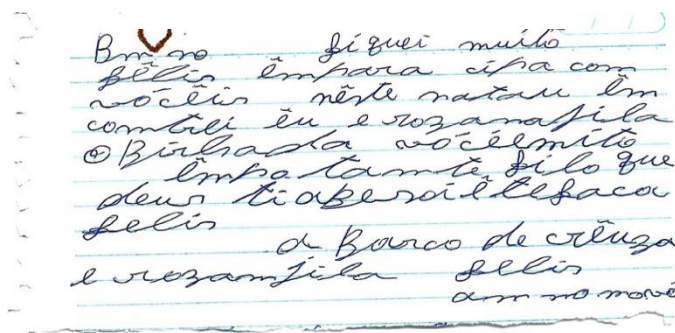 Bruno fiquei muito
fêlis êmpara cipa com
vócêis nêste natau êm
contrei êu e rozanafila
obirhada vócêemito
êmpotamte filo que
deus tiabensoiêtefaca
felis
d Barco de crêuza
e rozamfila felis
am no novo